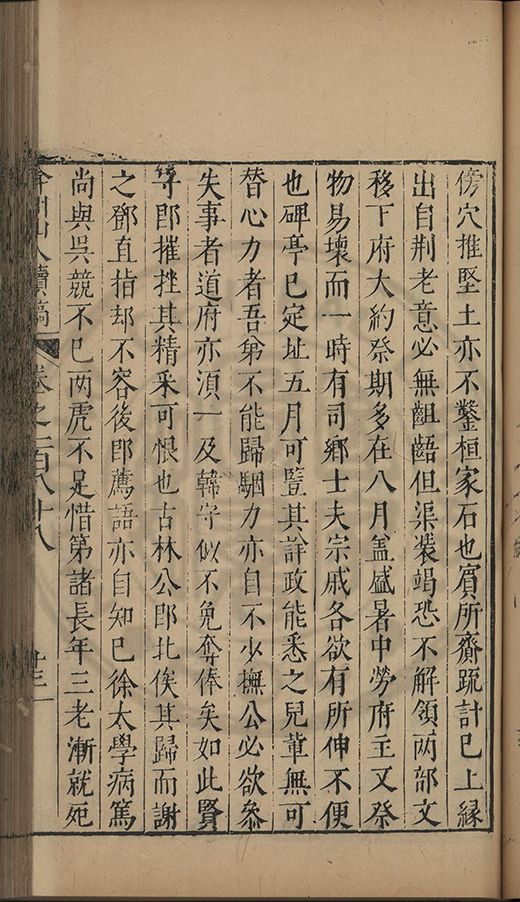 傍穴推堅土亦不鑿桓家石也賓所齎䟽計已上縁
出自荆老意必無齟齬但渠裝竭恐不解領两部文
移下府大約祭期多在八月盖盛暑中勞府主又祭
物易壞而一時有司鄉士夫宗戚各欲有所伸不便
也碑亭已定址五月可豎其詳政能悉之兒軰無可
替心力者吾弟不能歸駰力亦自不少撫公必欲叅
失事者道府亦湏一及韓守似不免奪俸矣如此賢
守即摧挫其精采可恨也古林公即北俟其歸而謝
之鄧直指却不容後即薦語亦自知已徐太學病篤
尚與吳競不已两虎不足惜第諸長年三老漸就㱙
弇州山人續稿
卷之一百八十八
十三